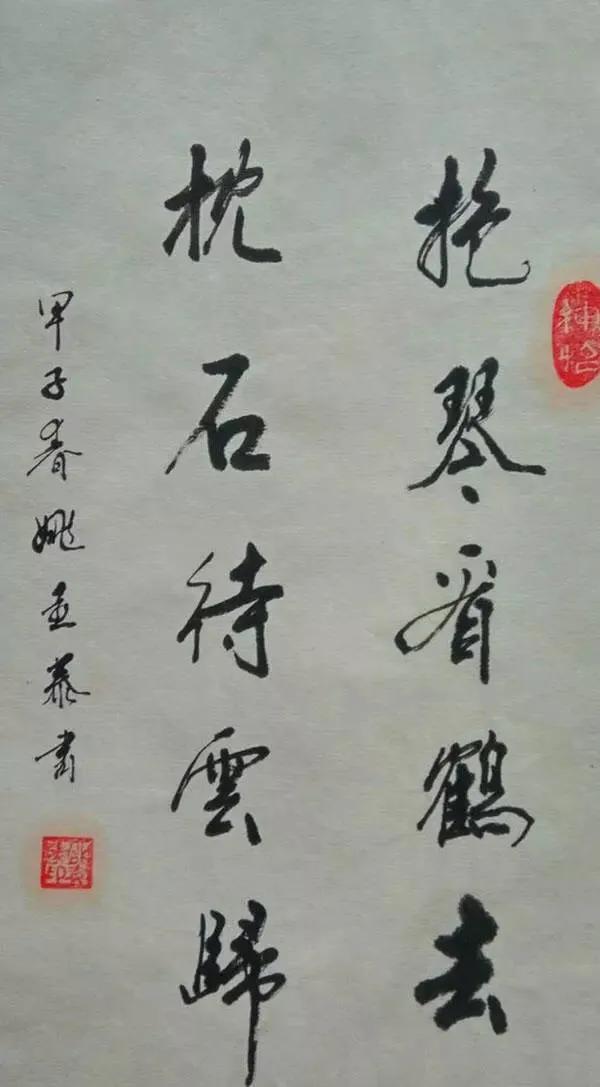 抱琴看鶴去
枕石待雲歸
甲子春姚孟慕書